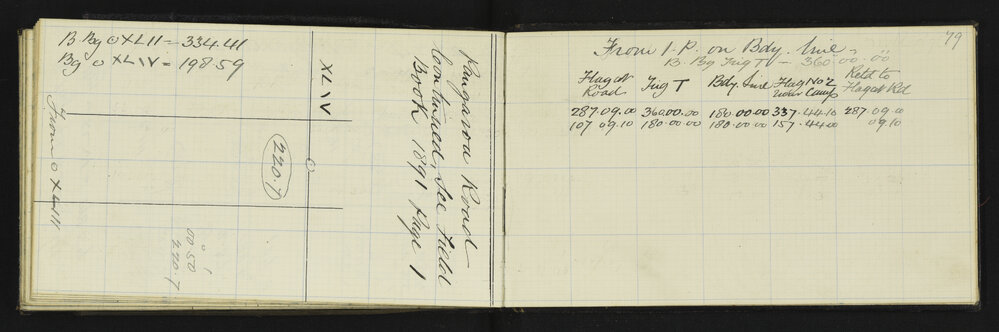 B. Bg ⊙ XLII = 334.41
Bg ⊙ XLIV = 198.59
XLIV
From ⊙ XLIII
220.7
0° 1'
00 50
220.7
Road
Continued, See Field
Book 1891 Page 1
79
From I.P. on Bdy. Line
B. Bg Trig T - 360.00.00
Flag at Road Trig T Bdy. Line Flag No 2 near Camp Retd to Flag at Rd
287.09.00 360.00.00 180.00.00 337.44.10 287.09.0
107.09.10 180.00.00 180.00.00 157.44.00 09.10